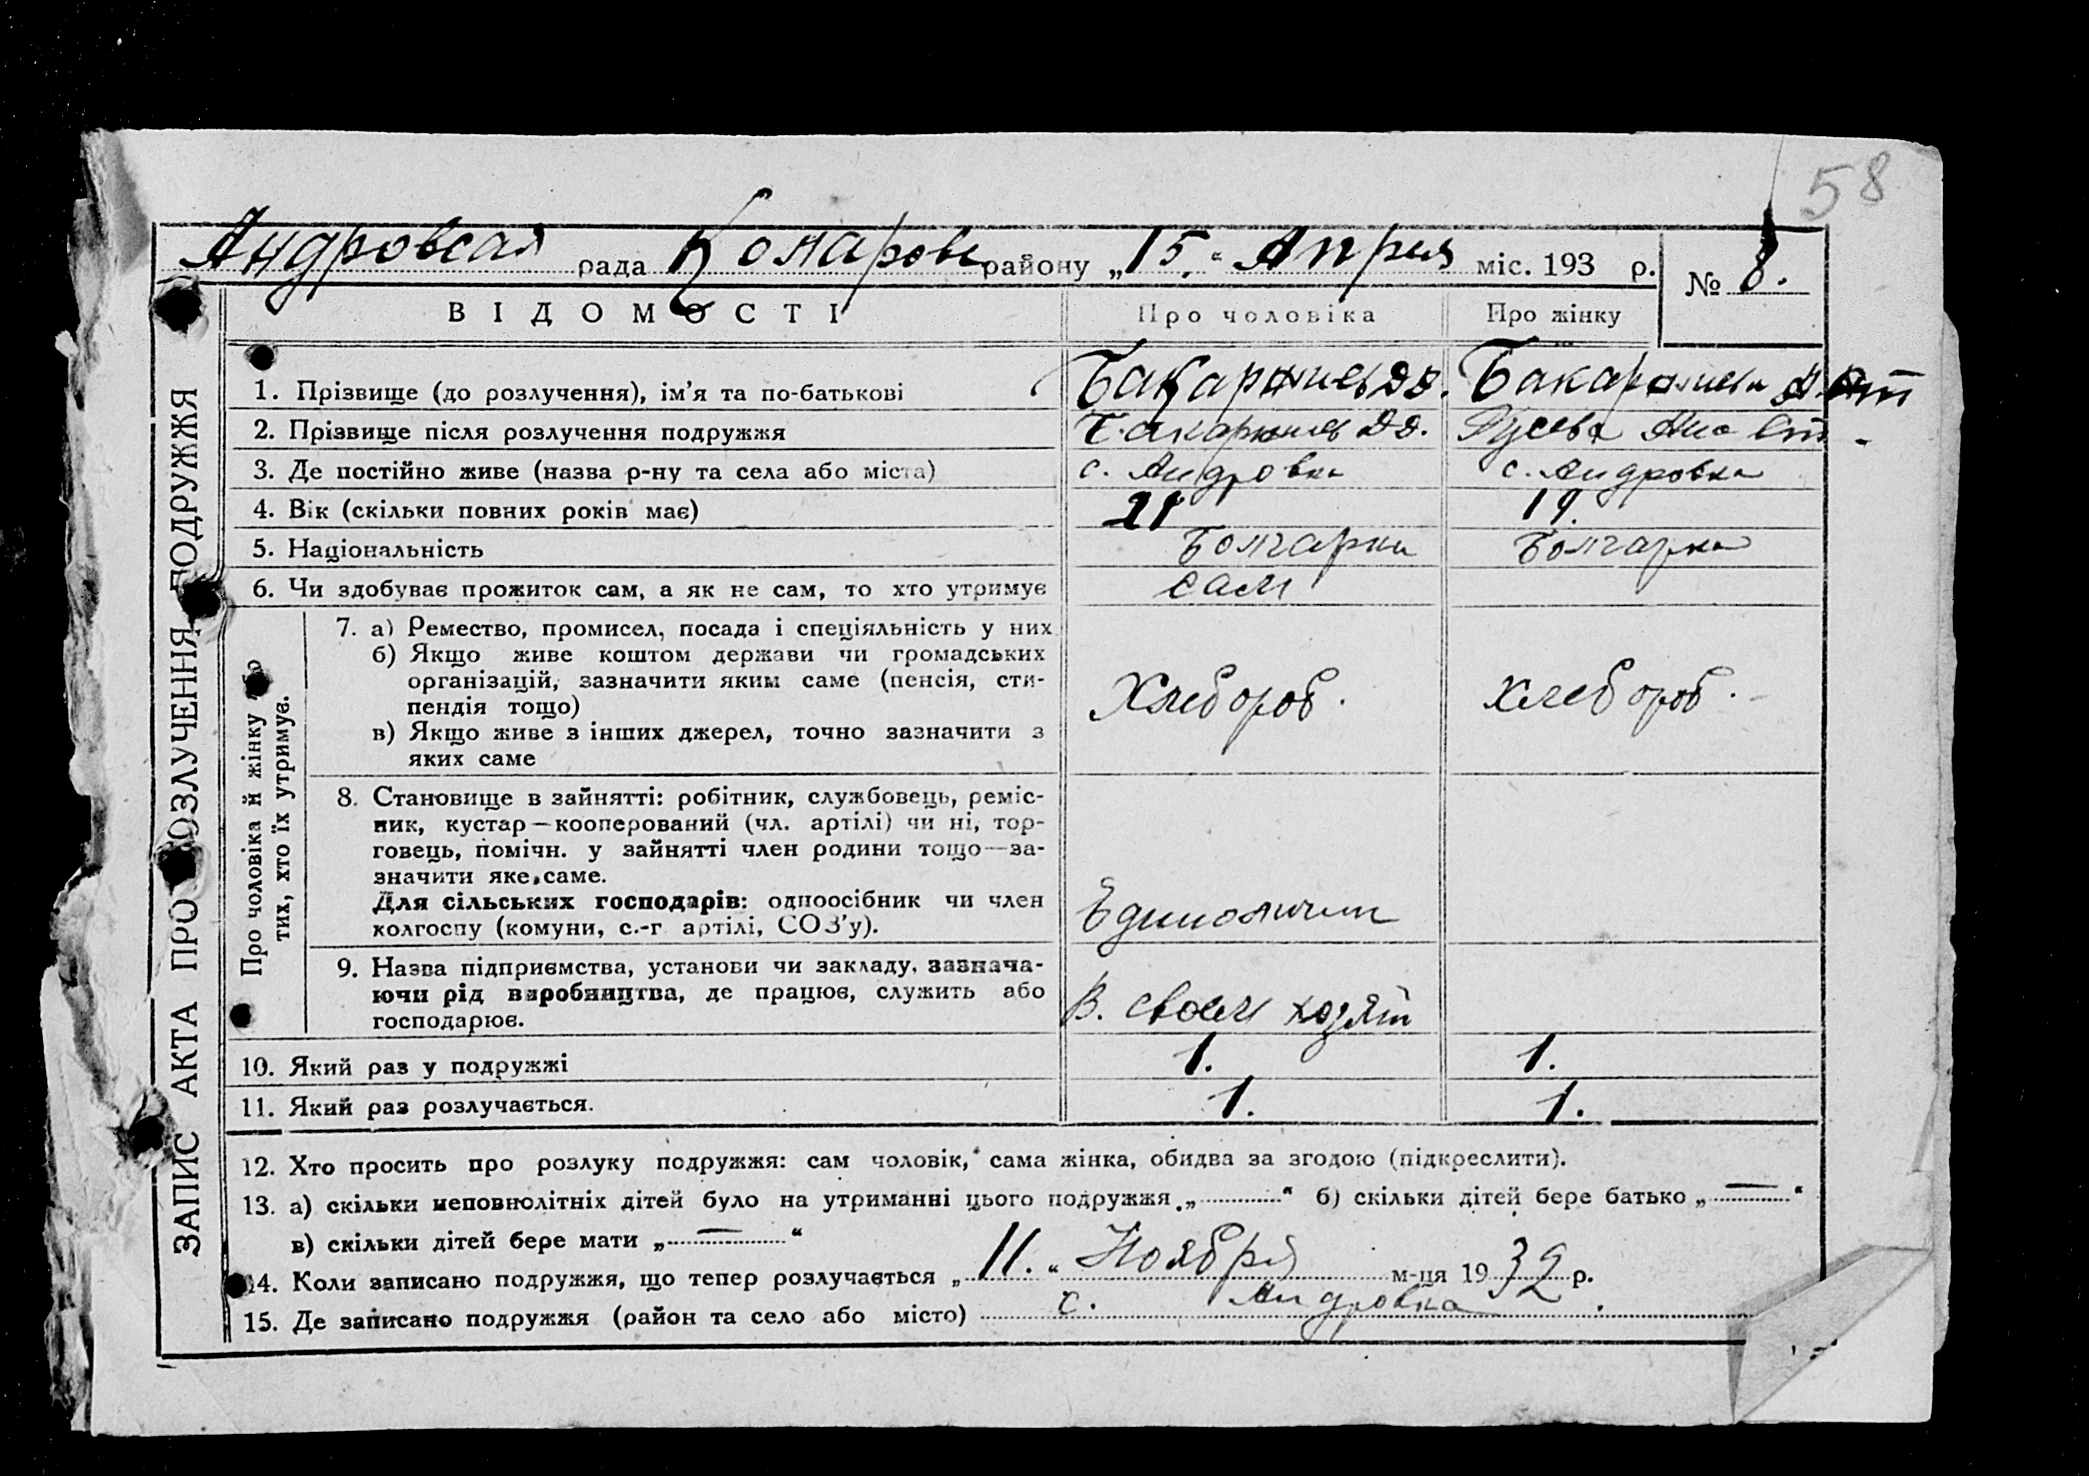 58
Андровсая рада Коларовс району „15.“ Апреля міс. 193 р. № 8.
ВІДОМОСТІ Про чоловіка Про жінку
1. Прізвище (до розлучення), ім'я та по-батькові
2. Прізвище після розлучення подружжя Гусева
3. Де постійно живе (назва р-ну та села або міста) с. Андровка с. Андровка
4. Вік (скільки повних років має) 21 19.
5. Національність Болгарин Болгарка
6. Чи здобуває прожиток сам, а як не сам, то хто утримує сам
7. а) Ремество, промисел, посада і спеціяльність у них
б) Якщо живе коштом держави чи громадських
організацій, зазначити яким саме (пенсія, сти-
пендія тощо) Хлебороб. Хлебороб.
в) Якщо живе з інших джерел, точно зазначити з
яких саме
8. Становище в зайнятті: робітник, службовець, реміс-
ник, кустар—кооперований (чл. артілі) чи ні, тор-
говець, помічн. у зайнятті член родини тощо—за-
значити яке саме.
Для сільських господарів: одноосібник чи член
колгоспу (комуни, с.-г артілі, СОЗ'у). Единоличник
9. Назва підприємства, установи чи закладу, зазнача-
ючи рід виробництва, де працює, служить або
господарює. В. своем хозяйт
10. Який раз у подружжі 1. 1.
11. Який раз розлучається. 1. 1.
Про чоловіка й жінку або
тих, хто їх утримує.
ЗАПИС АКТА ПРО РОЗЛУЧЕННЯ ПОДРУЖЖЯ
12. Хто просить про розлуку подружжя: сам чоловік, сама жінка, обидва за згодою (підкреслити).
13. а) скільки неповнолітніх дітей було на утриманні цього подружжя „ “ б) скільки дітей бере батько „—“
в) скільки дітей бере мати „—“
14. Коли записано подружжя, що тепер розлучається „11.“ Ноября м-ця 1932 р.
15. Де записано подружжя (район та село або місто) с. Андровка.